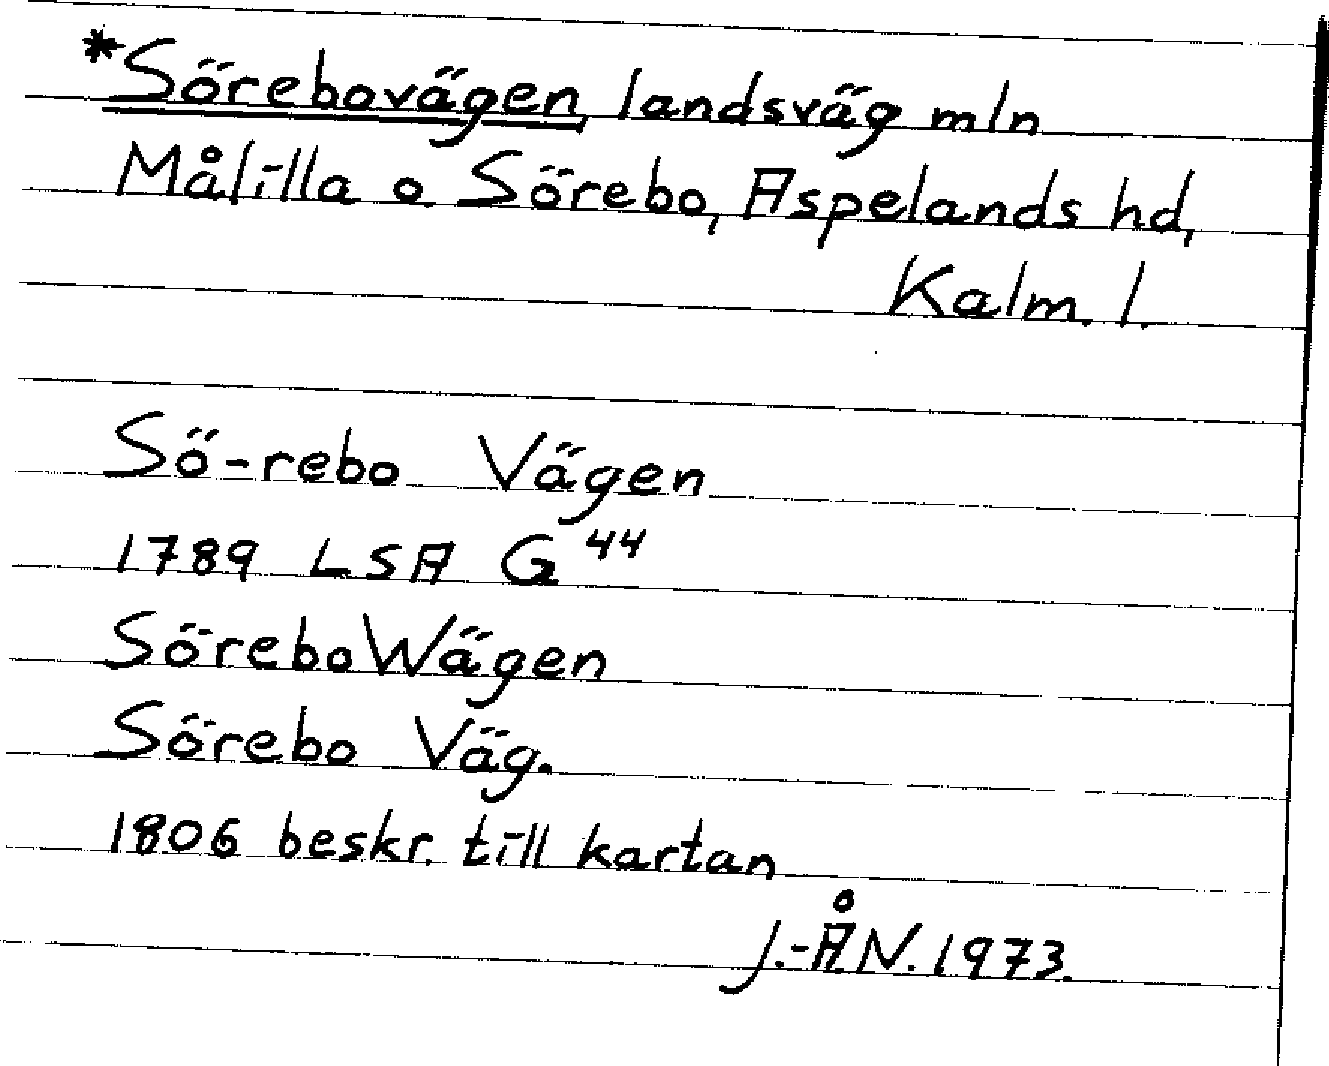 *Sörebovägen, landsväg mln
Målilla o. Sörebo, Aspelands hd,
Kalm. l.
Sö-rebo Vägen
1789 LSA G 44
Sörebo Wägen
Sörebo Väg.
1806 beskr. till kartan
J.-ÅN. 1973.